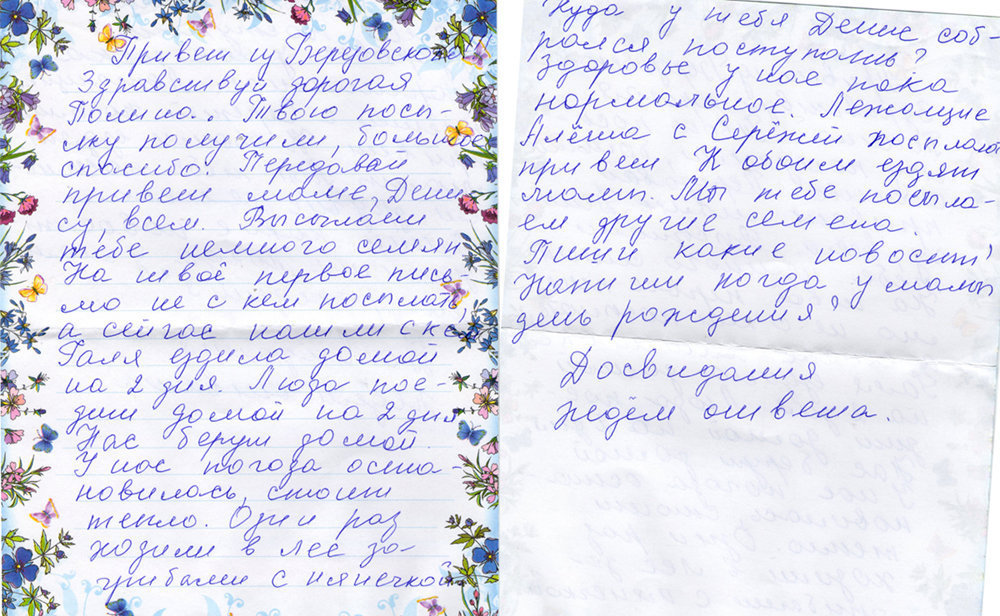 Привет из Березовского
Здравствуй дорогая
Полина. Твою посы-
лку получили, большое
спасибо. Передавай
привет маме, Дени
су, всем. Высылаем
тебе немного семян
На твоё первое пись-
мо не с кем посылать,
а сейчас нашли с кем
Галя ездила домой
на 2 дня. Люда пое-
дит домой на 2 дня
Нас берут домой.
У нас погода оста-
новилась, стоит
тепло. Один раз
ходили в лес за
грибами с нянечкой
Куда у тебя Денис соб-
рался поступать?
Здоровье у нас пока
нормальное. Лежащие
Алёша с Серёжей посылают
привет К обоим ездят
мамы. Мы тебе посыла-
ем другие семена.
Пиши какие новости!
Напиши когда у мамы
день рождения?
Досвидания
ждём ответа.